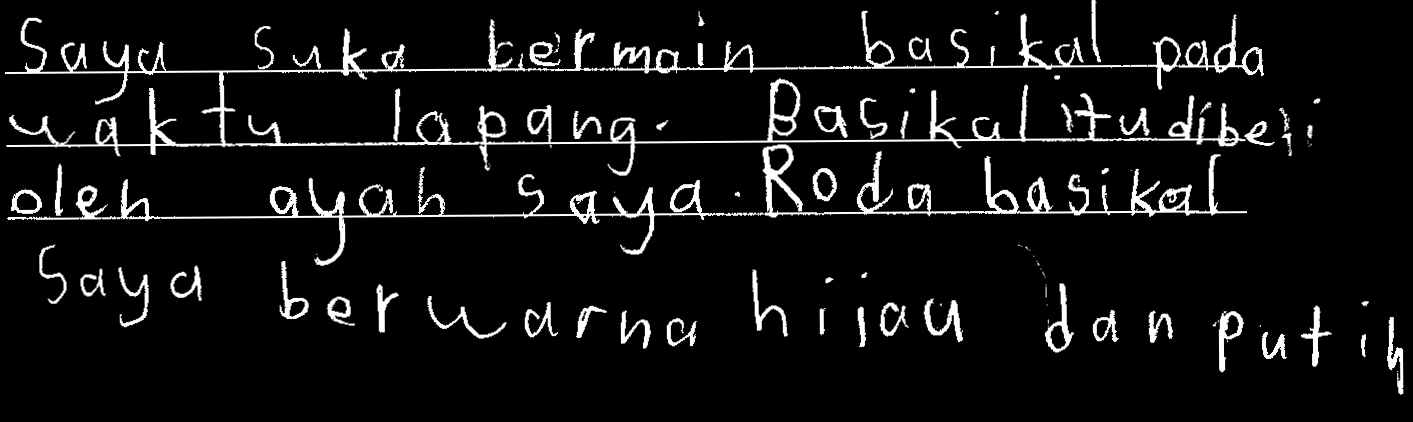 Saya suka bermain basikal pada
waktu lapang. Basikal itu dibeli
oleh ayah saya. Roda basikal
Saya berwarna hijau dan putih